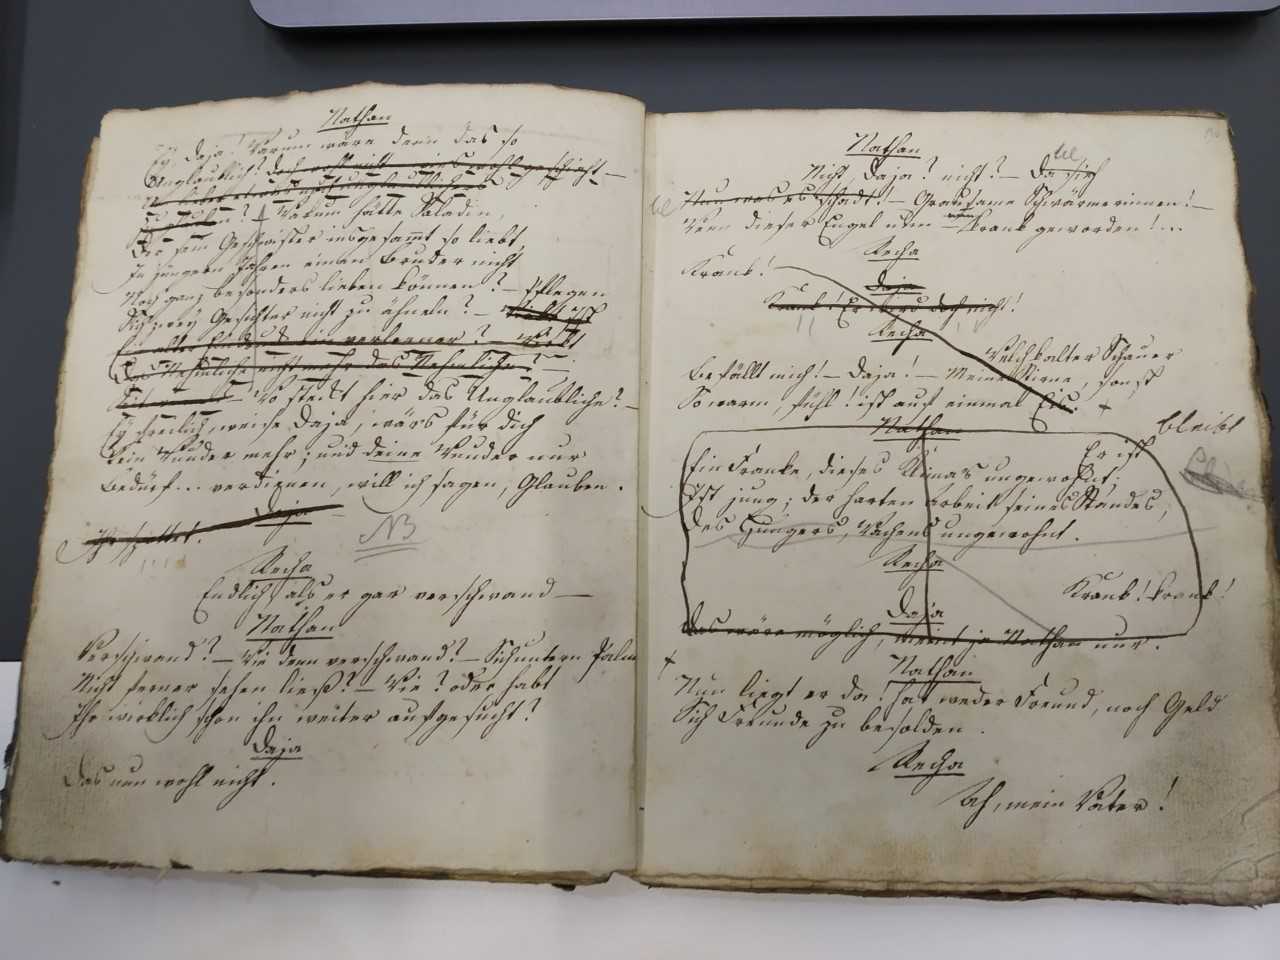 Nathan
Ey, Daja! Warum wäre denn das so
Unglaublich? Doch wohl nicht, wie's wohl geschieht –
Um lieber etwas noch unglaublichers
Zu glauben? Warum hätte Saladin,
Der sein Geschwister insgesammt so liebt,
In jüngern Jahren einen Bruder nicht
Noch ganz besonders lieben können? – Pflegen
Sich zwey Gesichter nicht zu ähneln? – Ist
Ein alter Eindruck ein verlorner? – Wirkt
Das Nehmliche nicht mehr das Nehmliche? –
Seit wenn? – Wo steckt hier das Unglaubliche? –
Ey freilich, weise Daja, wärs für dich
Kein Wunder mehr; und deine Wunder nur
Bedürf... verdienen, will ich sagen, Glauben.
Daja
Ihr spottet.
NB
Recha
Endlich, als er gar verschwand –
Nathan
Verschwand? – Wie denn verschwand? – Sich untern Palm
Nicht ferner sehen ließ? – Wie? oder habt
Ihr wirklich schon ihn weiter aufgesucht?
Daja
Das nun wohl nicht.
Nathan
Nicht, Daja? nicht? – Da sieh
Nun was es schadt! – Grausame Schwärmerinnen! –
Wenn dieser Engel nun – nun krank geworden!...
Recha
Krank!
Daja
Krank! Er wird doch nicht!
Recha
Welch kalter Schauer
Befällt mich! – Daja! – Meine Stirne, sonst
So warm, fühl! ist auf einmal Eis.
Nathan
bleibt
Er ist
Ein Franke, dieses Klimas ungewohnt;
Ist jung; der harten Arbeit seines Standes,
Des Hungers, Wachens ungewohnt.
Recha
Krank! krank!
Daja
Das wäre möglich, meint ja Nathan nur.
Nathan
Nun liegt er da! hat weder Freund, noch Geld
Sich Freunde zu besolden.
Recha
Ah, mein Vater!